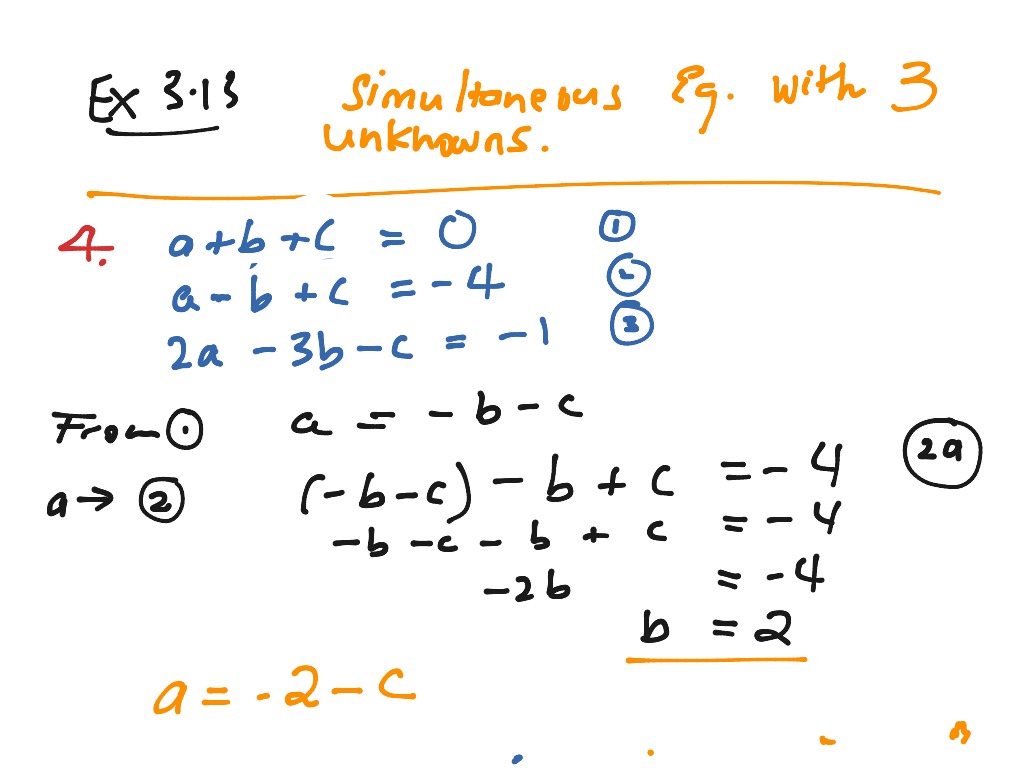 Ex 3.13 Simultaneous Eq. with 3
unknowns.
4. a + b + c = 0 ①
a - b + c = -4 ②
2a - 3b - c = -1 ③
From ① a = - b - c
a → ② (-b - c) - b + c = -4 2a
-b - c - b + c = -4
-2b = -4
b = 2
a = -2 - c